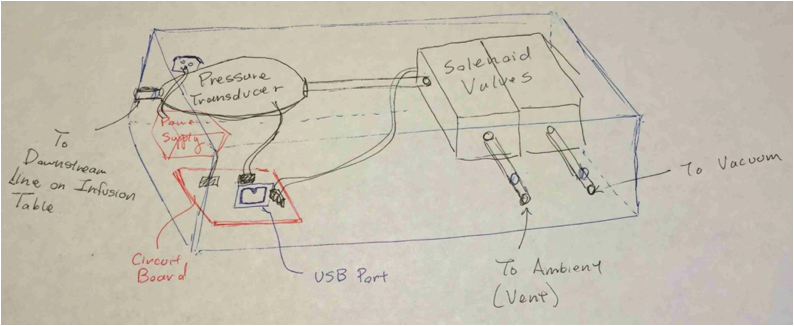 Pressure
Transducer
Solenoid
Valves
Power
Supply
To
Downstream
Line on Infusion
Table
Circuit
Board
USB Port
To Ambient
(Vent)
To Vacuum